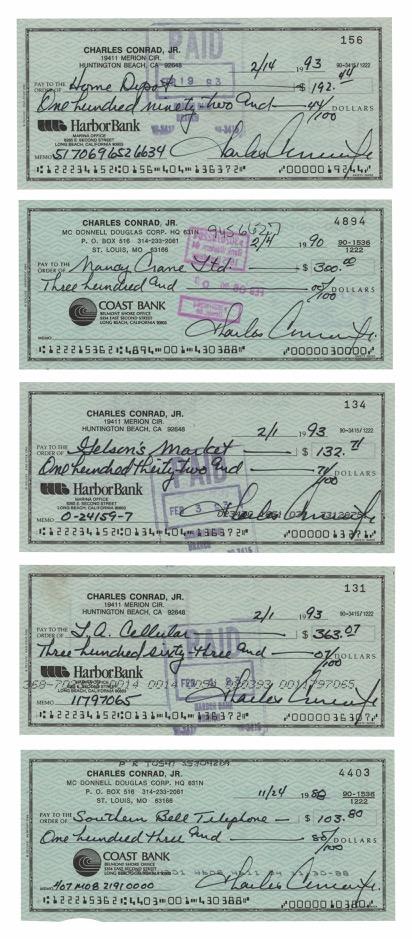 CHARLES CONRAD, JR. 156
19411 MERION CIR.
HUNTINGTON BEACH, CA 92648
PAID
2/14 1993 90-3415/1222
PAY TO THE ORDER OF Home Depot $ 192.44
One hundred ninety two and 44/100 DOLLARS
HarborBank
MARINA OFFICE
LONG BEACH, CALIFORNIA 90803
MEMO 517069652 6634 Charles Conrad Jr.
122234152 0156 404 136372 0000019244
CHARLES CONRAD, JR. 4894
MC DONNELL DOUGLAS CORP. HQ 631N
P. O. BOX 516 314-233-2061
ST. LOUIS, MO 63166
2/4 1990 90-1536/1222
PAY TO THE ORDER OF Nancy Crane Ltd. $ 300.00
Three hundred and 00/100 DOLLARS
COAST BANK
BELMONT SHORE OFFICE
5354 EAST SECOND STREET
LONG BEACH, CALIFORNIA 90803
MEMO Charles Conrad Jr.
122215362 4894 001 430388 0000030000
CHARLES CONRAD, JR. 134
19411 MERION CIR.
HUNTINGTON BEACH, CA 92648
2/1 1993 90-3415/1222
PAY TO THE ORDER OF Gelson's Market $ 132.71
One hundred thirty two and 71/100 DOLLARS
PAID
HarborBank
MARINA OFFICE
LONG BEACH, CALIFORNIA 90803
FEB 3
MEMO 0-24159-7 Charles Conrad Jr.
122234152 0134 404 136372 0000013271
CHARLES CONRAD, JR. 131
19411 MERION CIR.
HUNTINGTON BEACH, CA 92648
2/1 1993 90-3415/1222
PAY TO THE ORDER OF L.A. Cellular $ 363.07
PAID
Three hundred sixty-three and 07/100 DOLLARS
HarborBank
LONG BEACH, CALIFORNIA 90803
FEB 4 93
MEMO 11797065 Charles Conrad Jr.
122234152 0131 404 136372 0000036307
CHARLES CONRAD, JR. 4403
MC DONNELL DOUGLAS CORP. HQ 631N
P. O. BOX 516 314-233-2061
ST. LOUIS, MO 63166
11/24 1988 90-1536/1222
PAY TO THE ORDER OF Southern Bell Telephone $ 103.80
One hundred three and 80/100 DOLLARS
COAST BANK
BELMONT SHORE OFFICE
5354 EAST SECOND STREET
LONG BEACH, CALIFORNIA 90803
MEMO 407 M08 2191 0000 Charles Conrad Jr.
122215362 4403 001 430388 0000010380